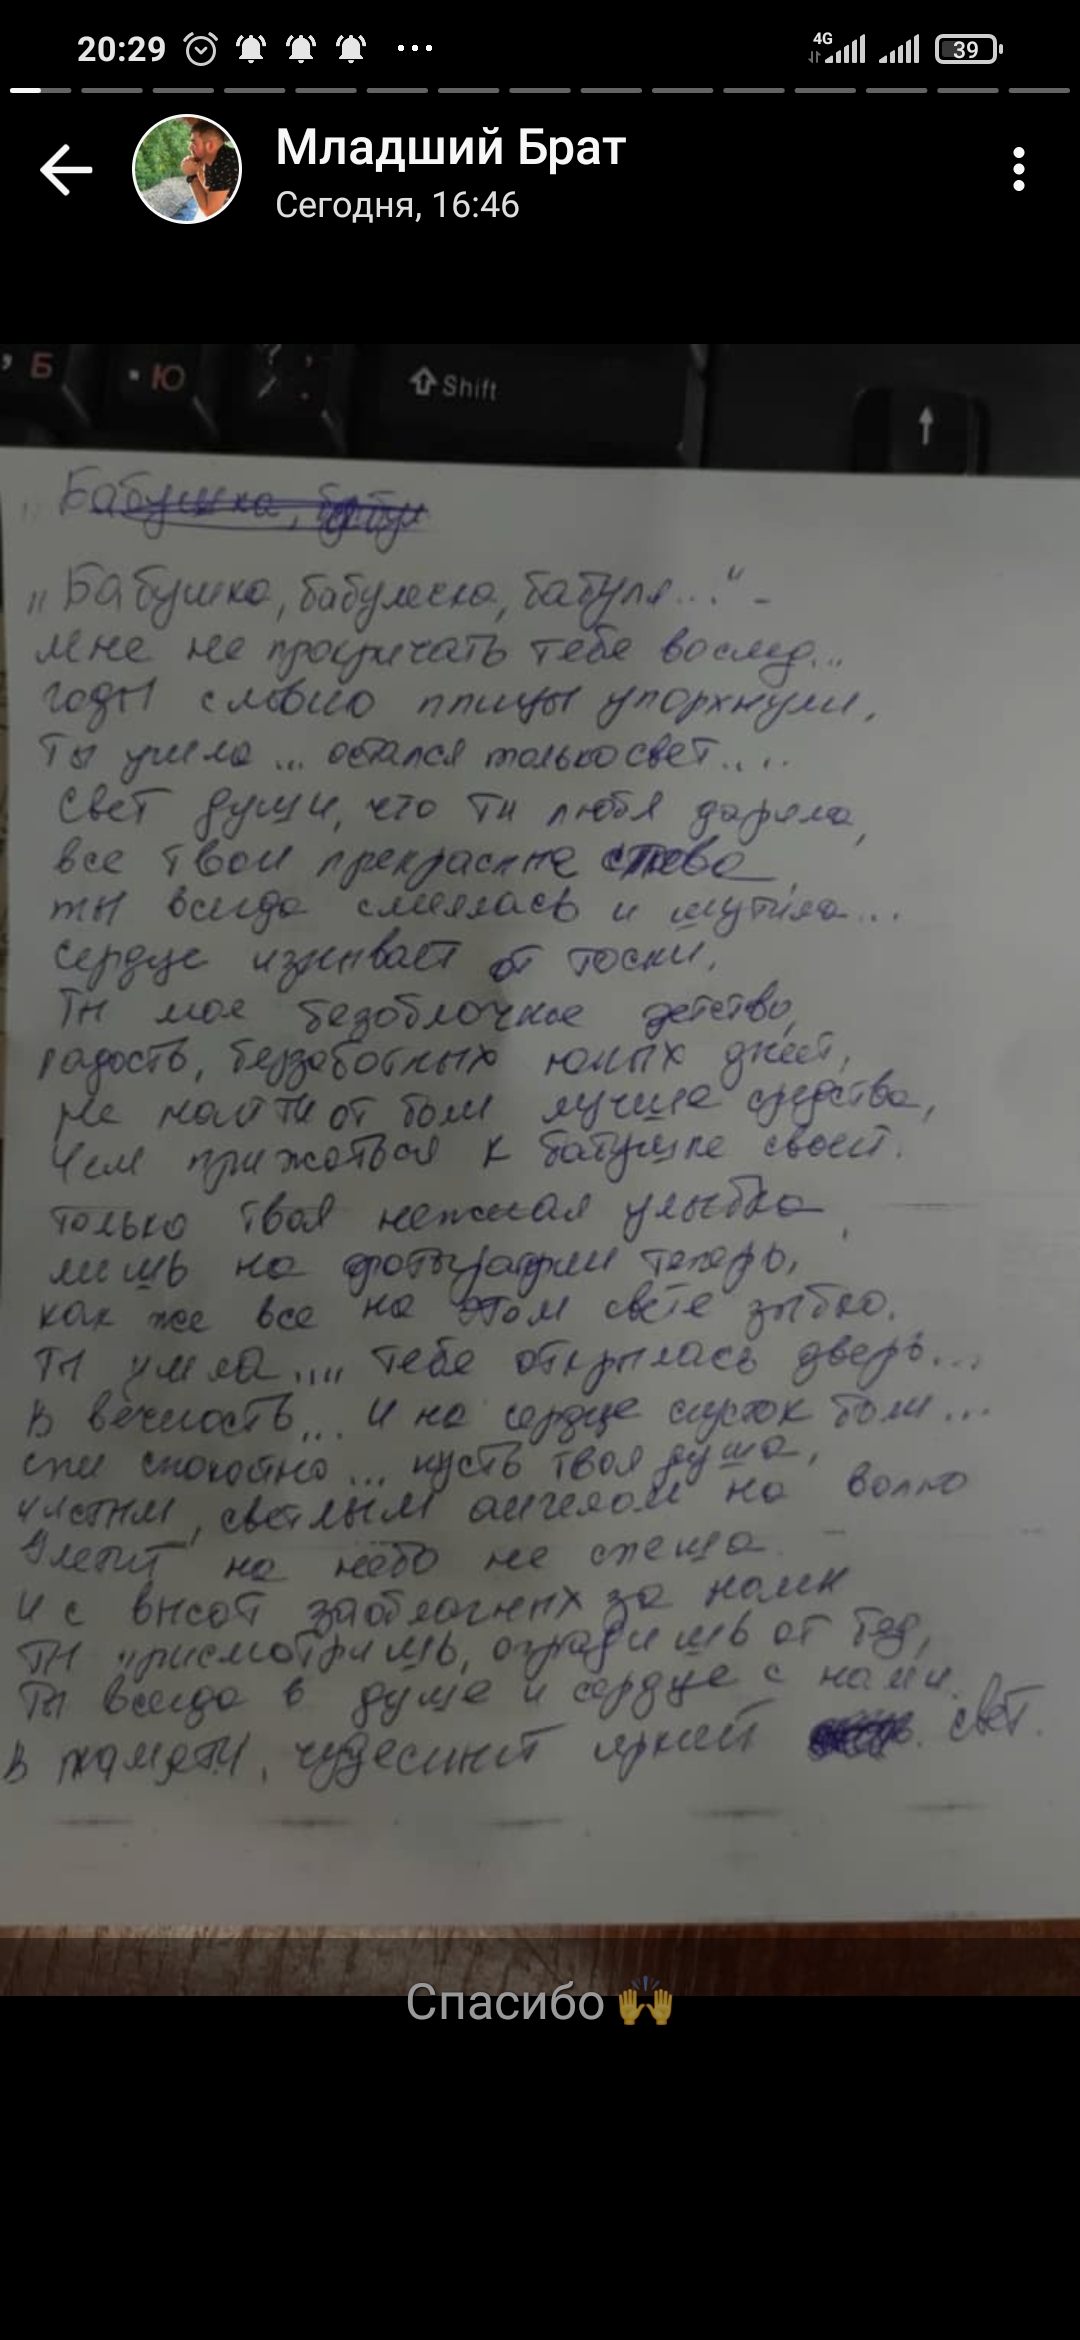 20:29 4G 39
Младший Брат
Сегодня, 16:46
, Б . Ю ? / , . Shift
Бабушка,
„Бабушка, бабулечка, бабуля..." -
мне не прокричать тебе вослед...
годы словно птицы упорхнули,
Ты ушла ... остался только свет....
Свет души, что ты любя дарила,
все твои прекрасные слова,
ты всегда смеялась и шутила...
Сердце изнывает от тоски,
Ты мое безоблачное детство,
радость, беззаботных юных дней,
Не найти от боли лучше средства,
Чем прижаться к бабушке своей.
только твоя нежная улыбка,
лишь на фотографии теперь,
как же все на этом свете зыбко.
Ты ушла.... тебе открылась дверь...
В вечность... И на сердце сгусток боли...
спи спокойно... пусть твоя душа,
чистым, светлым ангелом на волю
Улетит на небо не спеша.
И с высот заоблачных за нами
Ты присмотришь, оградишь от бед,
Ты всегда в душе и сердце с нами.
В памяти, чудесный яркий свет.
Спасибо 🙌